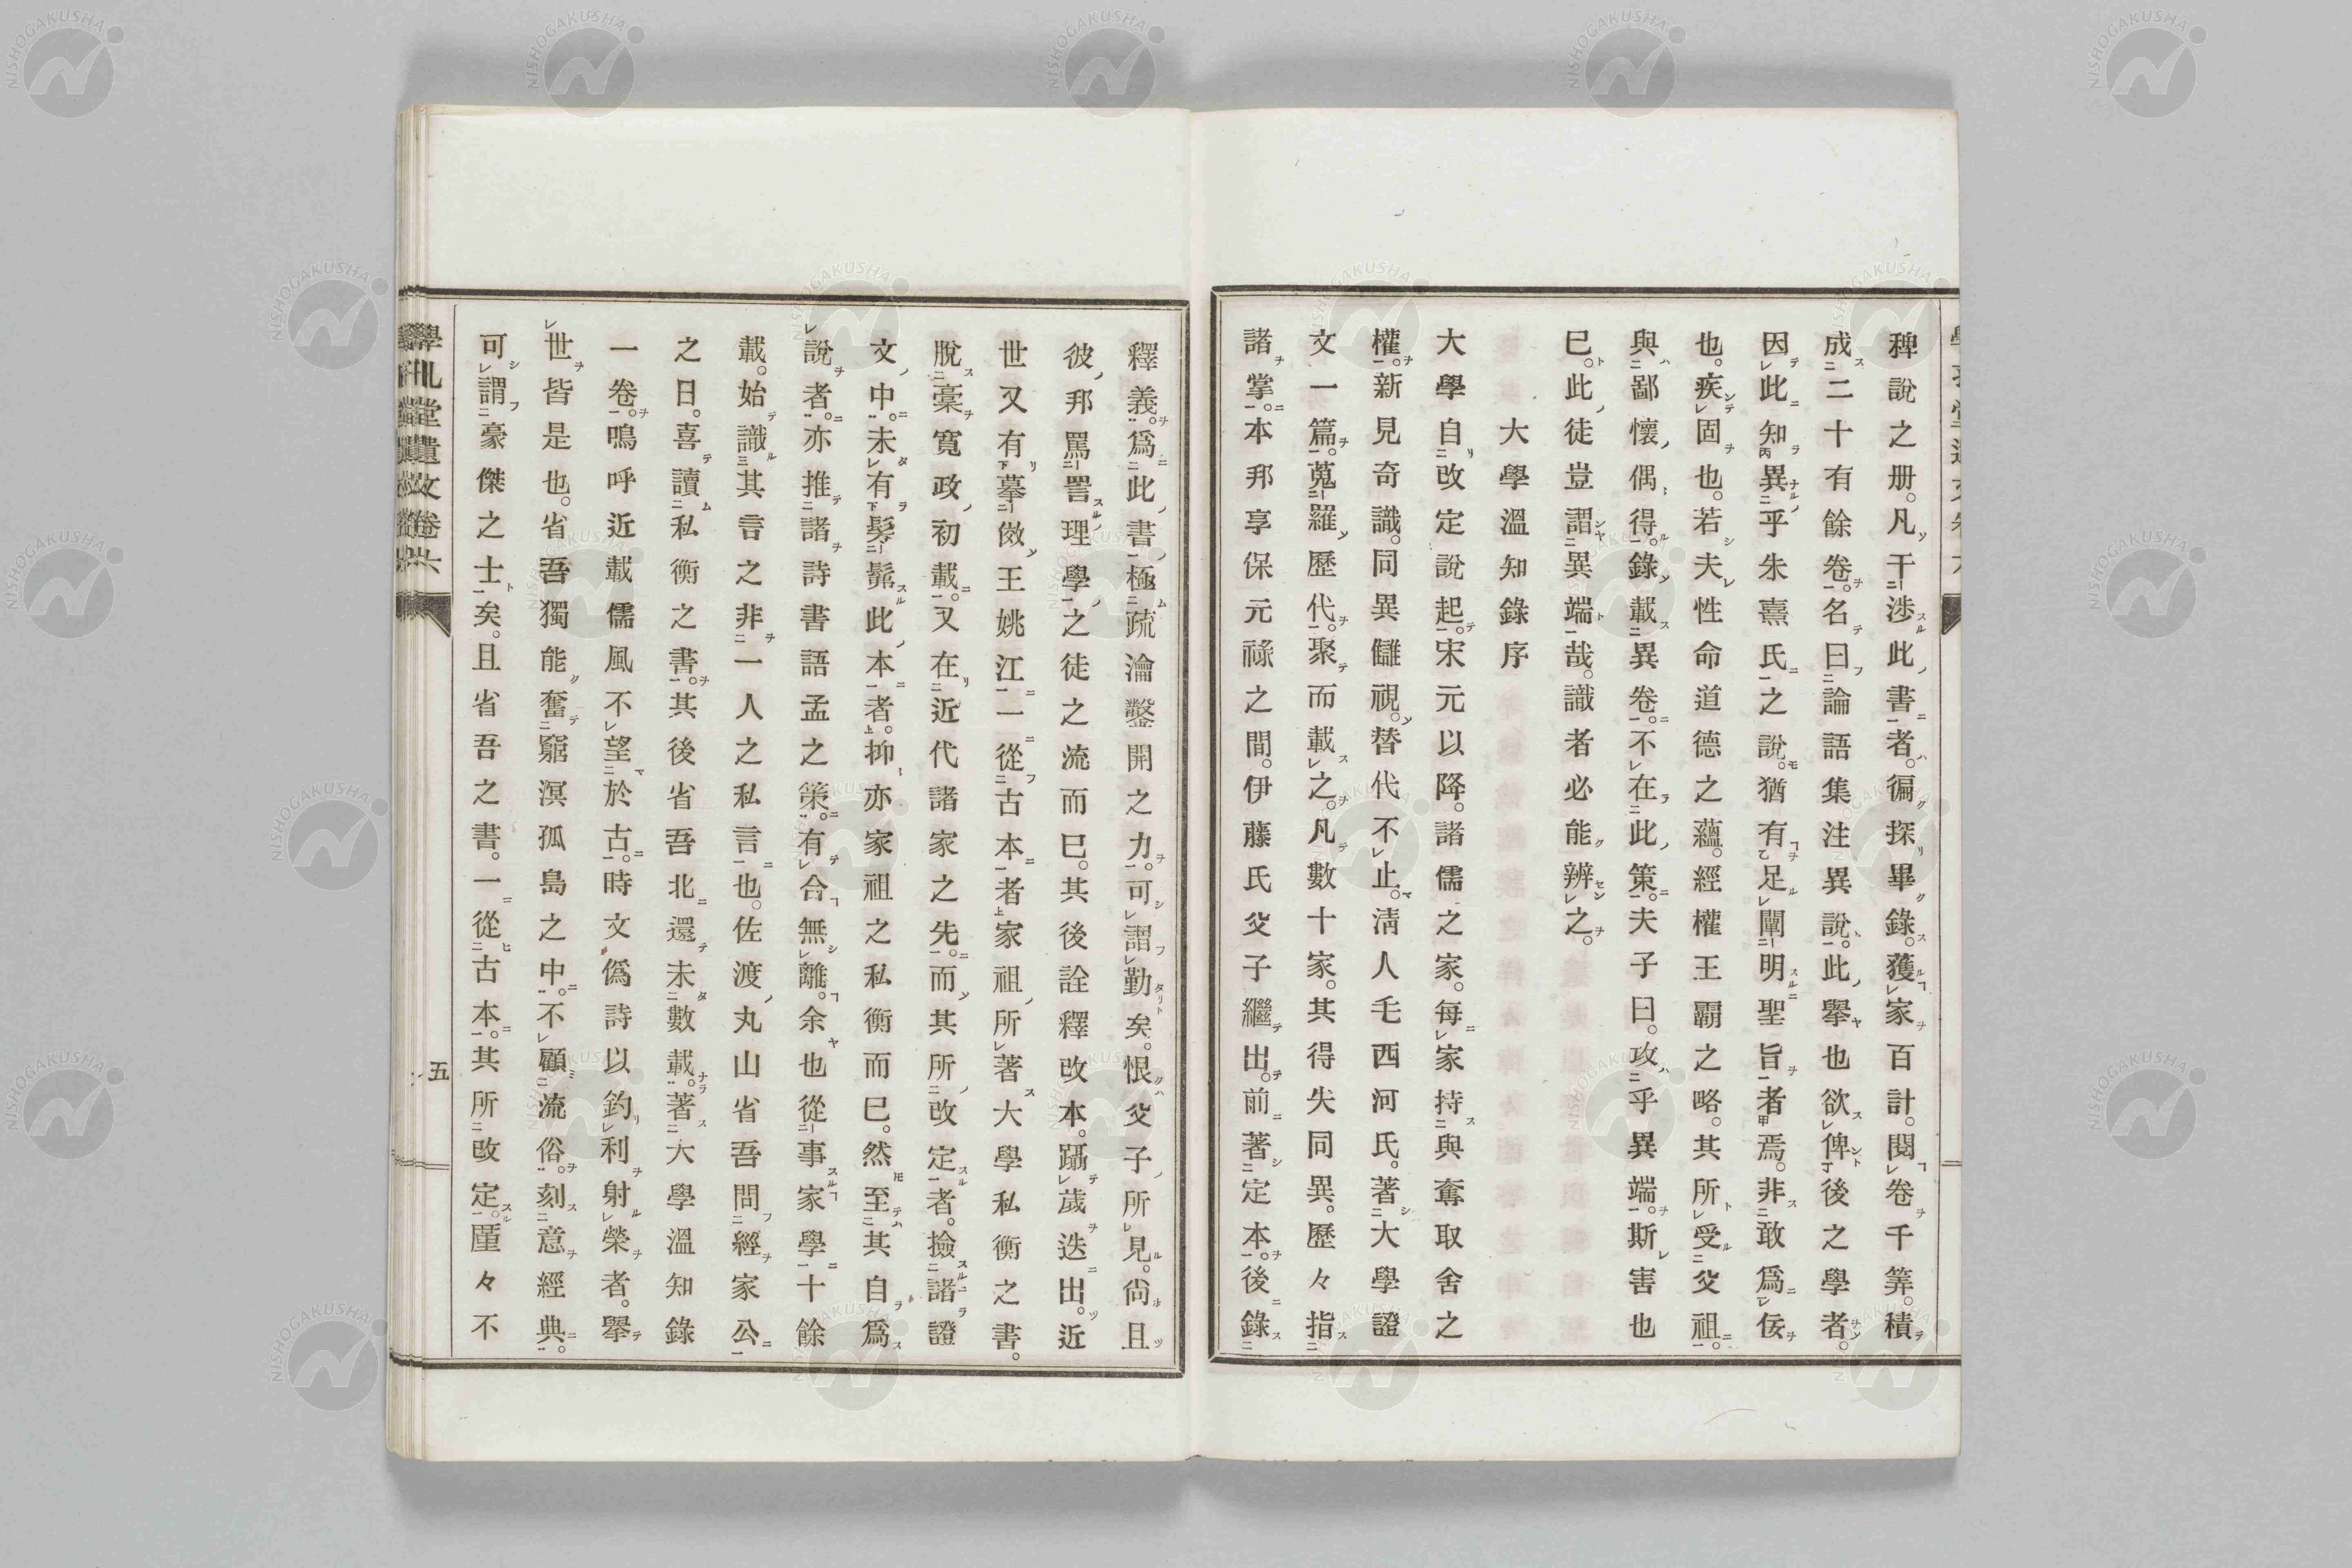 稗說之册。凡干涉此書者。徧探畢錄。獲家百計。閱卷千筭。積
成二十有餘卷。名曰論語集注異說。此擧也欲俾後之學者。
因此知異乎朱熹氏之說。猶有足闡明聖旨者焉。非敢爲佞
也。疾固也。若夫性命道德之蘊。經權王霸之略。其所受父祖。
與鄙懷偶得。錄載異卷。不在此策。夫子曰。攻乎異端。斯害也
已。此徒豈謂異端哉。識者必能辨之。
大學溫知錄序
大學自改定說起。宋元以降。諸儒之家。每家持與奪取舍之
權。新見奇識。同異讎視。替代不止。淸人毛西河氏。著大學證
文一篇。蒐羅歷代。聚而載之。凡數十家。其得失同異。歷々指
諸掌。本邦享保元祿之間。伊藤氏父子繼出。前著定本。後錄
釋義。爲此書極疏瀹鑿開之力。可謂勤矣。恨父子所見。尙且
彼邦罵詈理學之徒之流而已。其後詮釋改本。躡歲迭出。近
世又有摹倣王姚江一從古本者家祖所著大學私衡之書。
脫稾寬政初載。又在近代諸家之先。而其所改定者。撿諸證
文中。未有髣髴此本者。抑亦家祖之私衡而已。然至其自爲
說者。亦推諸詩書語孟之策。有合無離。余也從事家學十餘
載。始識其言之非一人之私言也。佐渡丸山省吾問經家公
之日。喜讀私衡之書。其後省吾北還未數載。著大學溫知錄
一卷。嗚呼近載儒風不望於古。時文僞詩以釣利射榮者。擧
世皆是也。省吾獨能奮窮溟孤島之中。不顧流俗。刻意經典。
可謂豪傑之士矣。且省吾之書。一從古本。其所改定。厪々不
堂遺文卷六
五
NISHOGAKUSHA